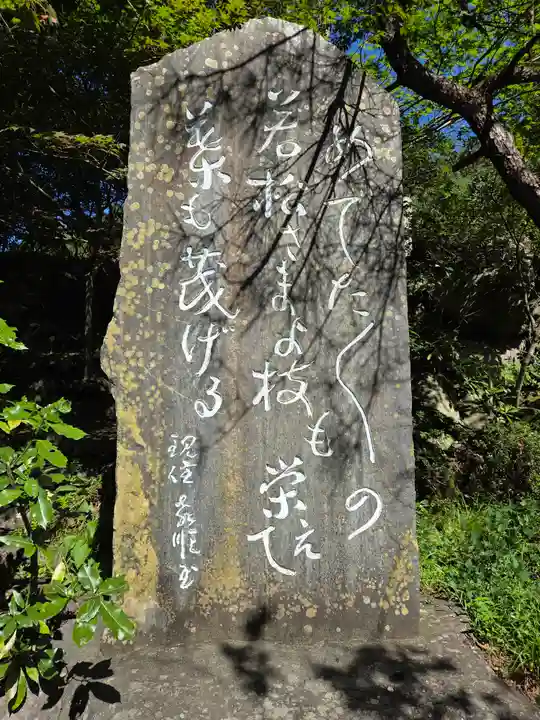 めでたく〳〵の
若松さまよ枝も栄えて
葉も茂げる
現住